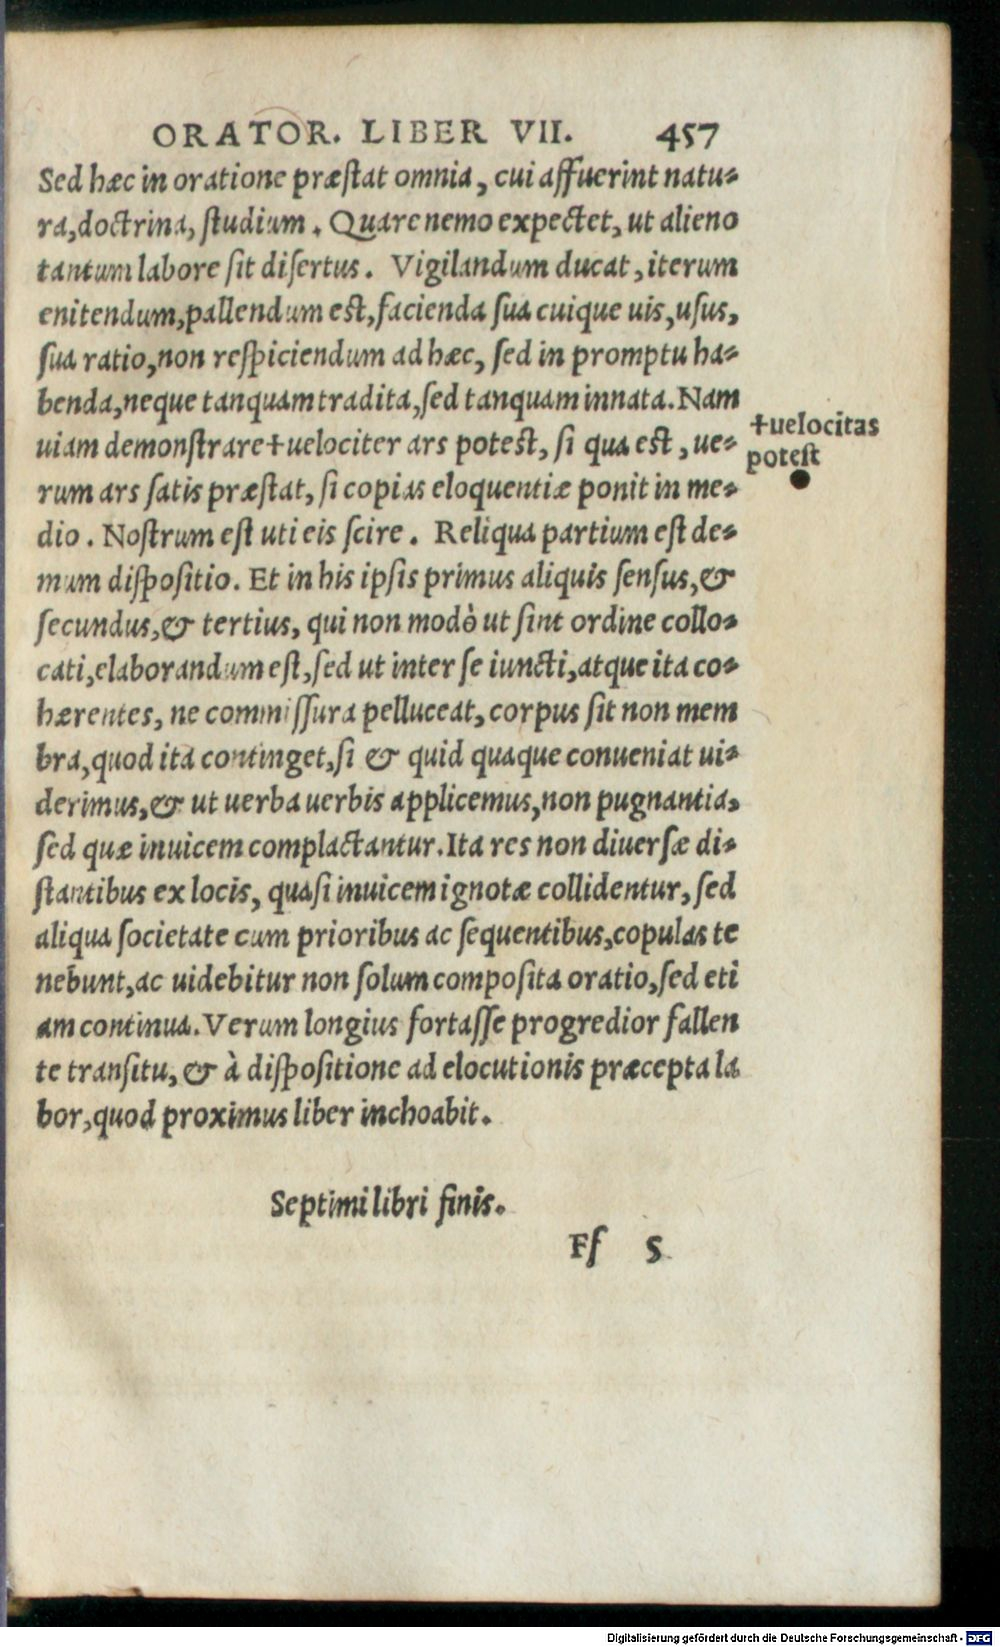 ORATOR. LIBER VII. 457
Sed hæc in oratione præstat omnia, cui affuerint natu-
ra, doctrina, studium. Quare nemo expectet, ut alieno
tantum labore sit disertus. Vigilandum ducat, iterum
enitendum, pallendum est, facienda sua cuique uis, usus,
sua ratio, non respiciendum ad hæc, sed in promptu ha-
benda, neque tanquam tradita, sed tanquam innata. Nam
uiam demonstrare +uelociter ars potest, si qua est, ue-
+uelocitas
potest
rum ars satis præstat, si copias eloquentiæ ponit in me-
dio. Nostrum est uti eis scire. Reliqua partium est de-
mum dispositio. Et in his ipsis primus aliquis sensus, &
secundus, & tertius, qui non modò ut sint ordine collo-
cati, elaborandum est, sed ut inter se iuncti, atque ita co-
hærentes, ne commissura pelluceat, corpus sit non mem
bra, quod ita continget, si & quid quaque conueniat ui-
derimus, & ut uerba uerbis applicemus, non pugnantia,
sed quæ inuicem complactantur. Ita res non diuersæ di-
stantibus ex locis, quasi inuicem ignotæ collidentur, sed
aliqua societate cum prioribus ac sequentibus, copulas te
nebunt, ac uidebitur non solum composita oratio, sed eti
am continua. Verum longius fortasse progredior fallen
te transitu, & à dispositione ad elocutionis præcepta la
bor, quod proximus liber inchoabit.
Septimi libri finis.
Ff 5
Digitalisierung gefördert durch die Deutsche Forschungsgemeinschaft - DFG